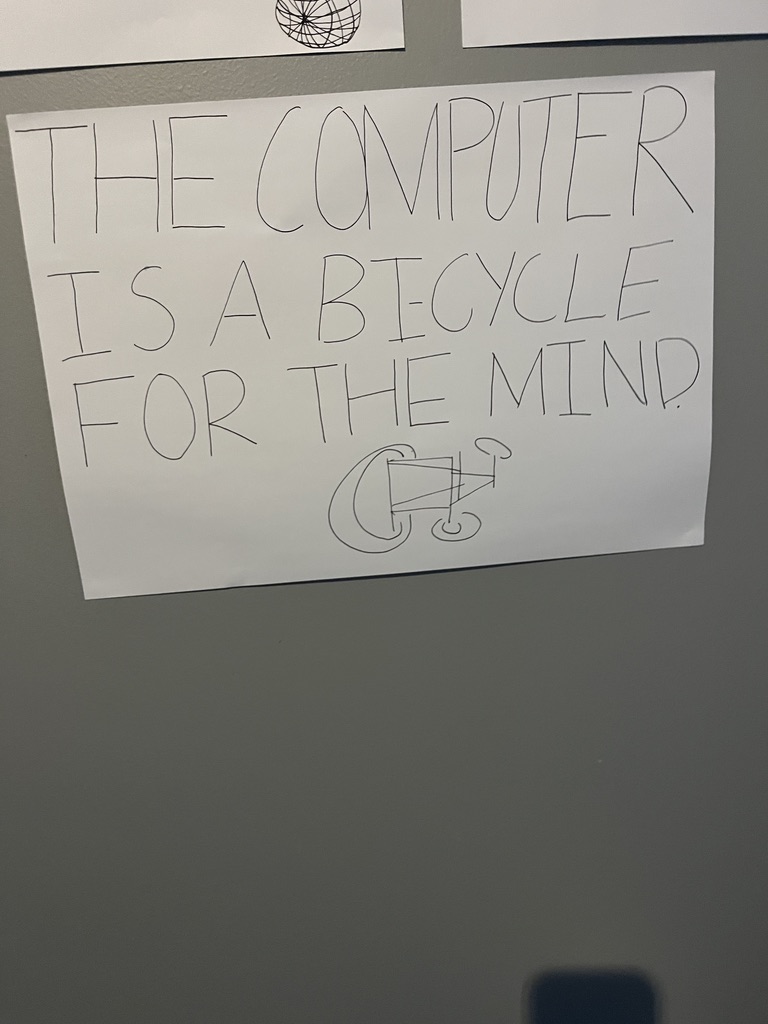 THE COMPUTER
IS A BICYCLE
FOR THE MIND.